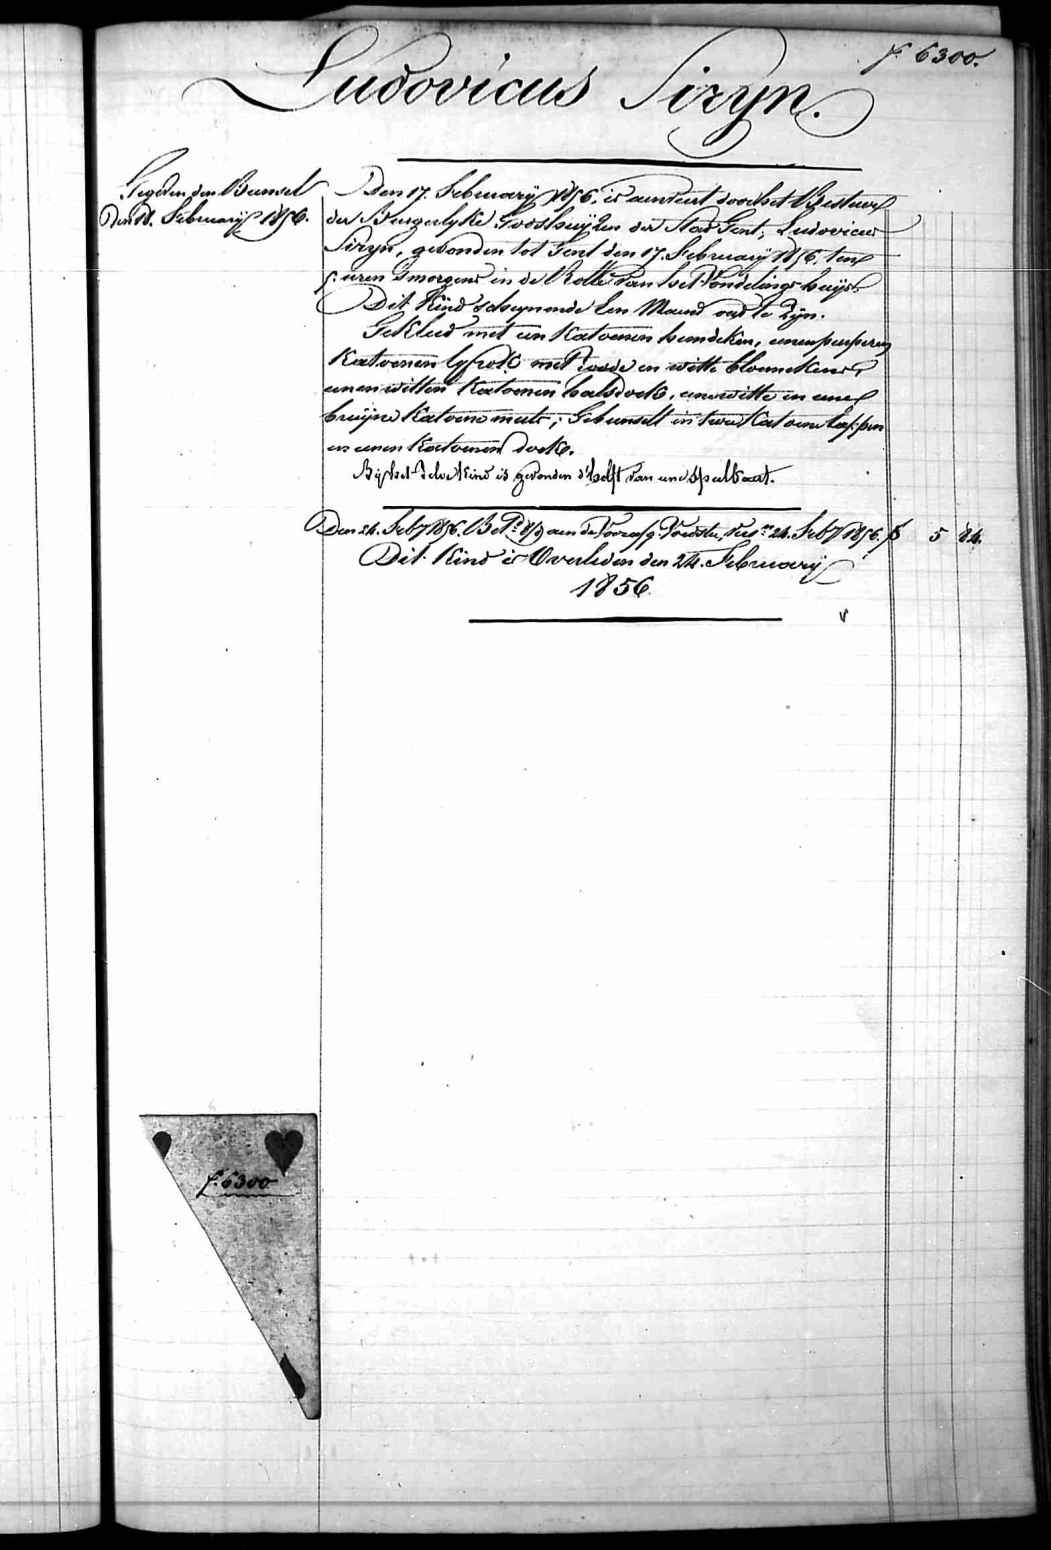 f. 6300.
Ludovicus Siryn.
Tegeden den Bunsel
Den 18. February 1856.
Den 17. February 1856, is aenveert door het Bestuer
der Burgerlyke Godshuyzen der Stad Gent, Ludovicus
Siryn, gevonden tot Gent den 17. February 1856, ten
5. uren 's morgens in de Rolle van het Vondelings huys.
Dit Kind schynende Een Maend oud te zyn.
Gekleed met een Katoenen hemdeken, eenen purperen
Katoenen lyfrok met roode en witte bloemekens,
eenen witten Katoenen halsdoek, eene witte en eene
bruyne Katoene muts; Gebunselt in twee Katoene lappen
en eenen Katoenen doek.
By het zelve Kind is gevonden d'helft van eene Speelkaert.
Den 24. Feb 1856. aen de 24. Feb 1856. 5 84.
Dit Kind is Overleden den 24. February
1856.
f. 6300